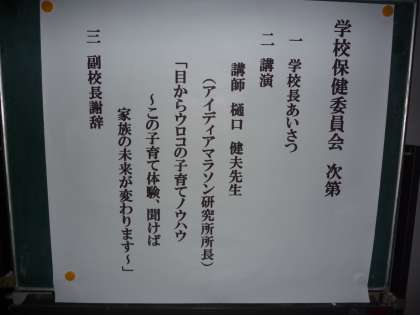 学校保健委員会 次第
一 学校長あいさつ
二 講演
講師 樋口 健夫先生
（アイディアマラソン研究所所長）
「目からウロコの子育てノウハウ
～この子育て体験、聞けば
家族の未来が変わります～」
三 副校長謝辞